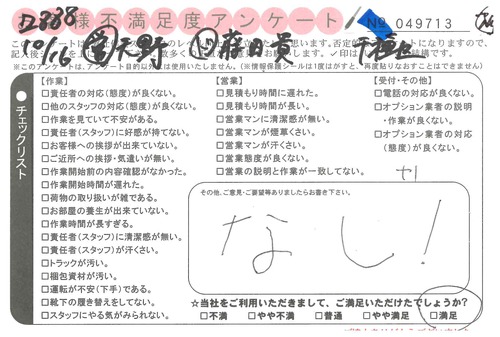 様不満足度アンケート
No 049713
※このアンケートは、アンケート目的以外には使用いたしません。(※情報保護シールは1度はがすと、再度貼りなおすことはできません)
チェックリスト
【作業】
□責任者の対応(態度)が良くない。
□他のスタッフの対応(態度)が良くない。
□作業を見ていて不安がある。
□責任者(スタッフ)に好感が持てない。
□お客様への挨拶が出来ていない。
□ご近所への挨拶・気遣いが無い。
□作業開始前の内容確認がなかった。
□作業開始時間が遅れた。
□荷物の取り扱いが雑である。
□お部屋の養生が出来ていない。
□作業時間が長すぎる。
□責任者(スタッフ)に清潔感が無い。
□責任者(スタッフ)が汗くさい。
□トラックが汚い。
□梱包資材が汚い。
□運転が不安(下手)である。
□靴下の履き替えをしてない。
□スタッフにやる気がみられない。
【営業】
□見積もり時間に遅れた。
□見積もり時間が長い。
□営業マンに清潔感が無い。
□営業マンが煙草くさい。
□営業マンが汗くさい。
□営業態度が良くない。
□営業の説明と作業が一致してない。
【受付・その他】
□電話の対応が良くない。
□オプション業者の説明
・作業が良くない。
□オプション業者の対応
(態度)が良くない。
その他、ご意見・ご要望等ありましたらお書き下さい。
なし!
☆当社をご利用いただきまして、ご満足いただけたでしょうか?
□不満 □やや不満 □普通 □やや満足 □満足